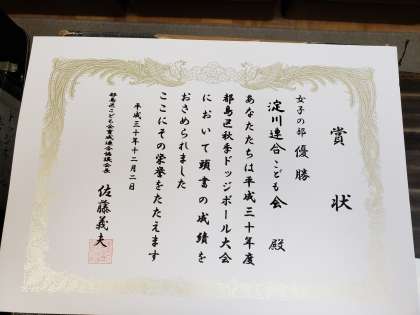 賞状
女子の部 優勝
淀川連合こども会 殿
あなたたちは平成三十年度
都島区秋季ドッジボール大会
において頭書の成績を
おさめられました
ここにその栄誉をたたえます
平成三十年十二月二日
都島区こども会育成連合協議会長
佐藤義夫